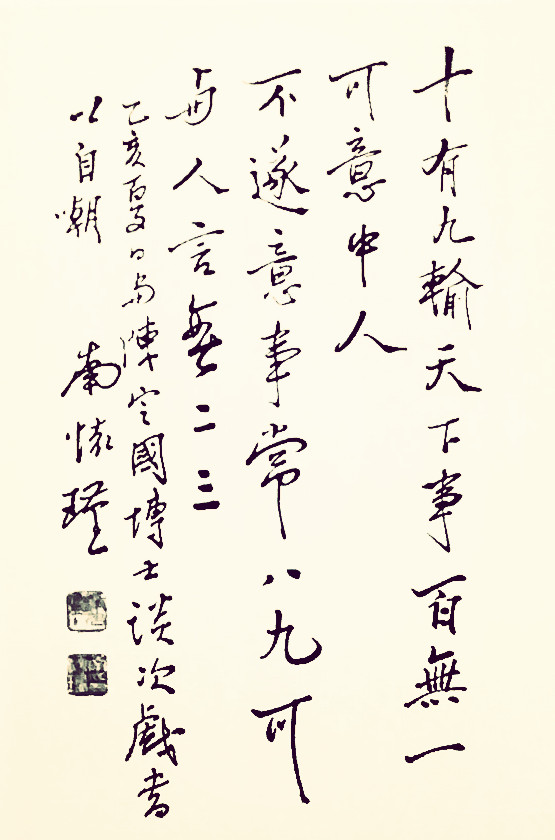 十有九輸天下事百無一
可意中人
不遂意事常八九可
与人言無二三
乙亥夏日与陳定國博士談次戲書
以自嘲 南懷瑾